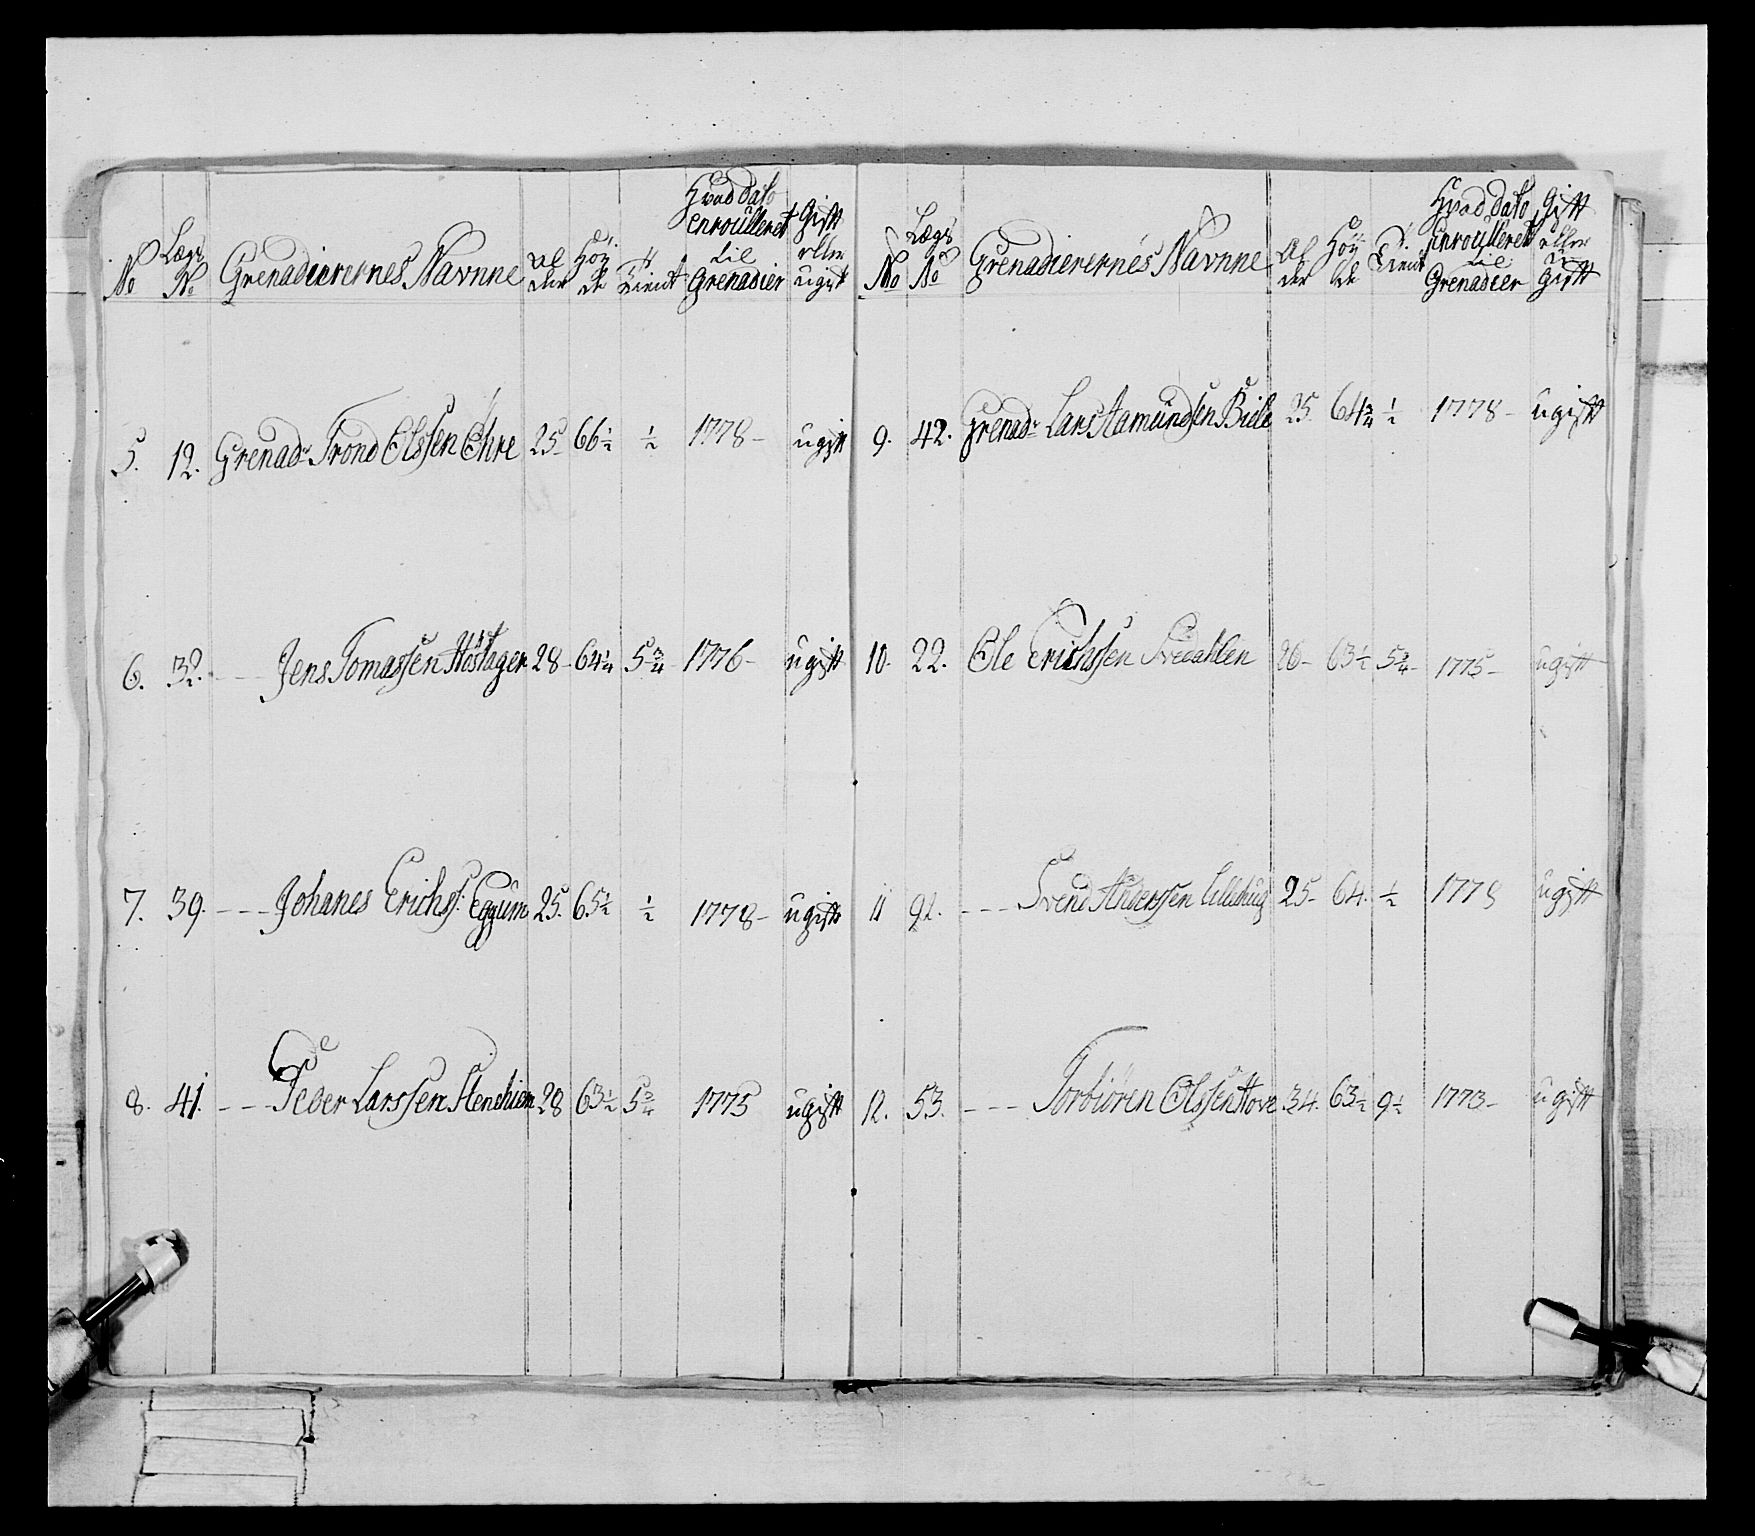 No
Lægs No
Grenadierernes Navnne
Al der
Høy de
Tient
Hvad Dato enroulleret til Grenadier
Gift eller ugift
5. 12. Grenadr Trond Olssen Ehre 25 66½ ½ 1778 - ugift
6. 32. - - - Jens Tomassen Høstager 28 - 64¼ 5¾ 1776 - ugift
7. 39. - - - Johanes Erichs: Eggum 25. 65½ ½ 1778 - ugift
8. 41. - - - Peder Larssen 28 63½ 5¾ 1775 ugift
No
Lægs No
Grenadierernes Navnne
Al der
Høy de
Tient
Hvad Dato Enroulleret til Grenadier
Gift eller u gift
9. 42. Grenadr Lars Aamundsen 25 64¾ ½ 1778 - ugift
10. 22. Ole Erichssen 26 - 63½ 5¾ - 1775 - ugift
11 - - - Svend Anderssen 25 - 64. ½ 1778 ugift
12. 53. - - - Torbiøren Olssen Hove 34. 63½ 9½ 1773 - ugift